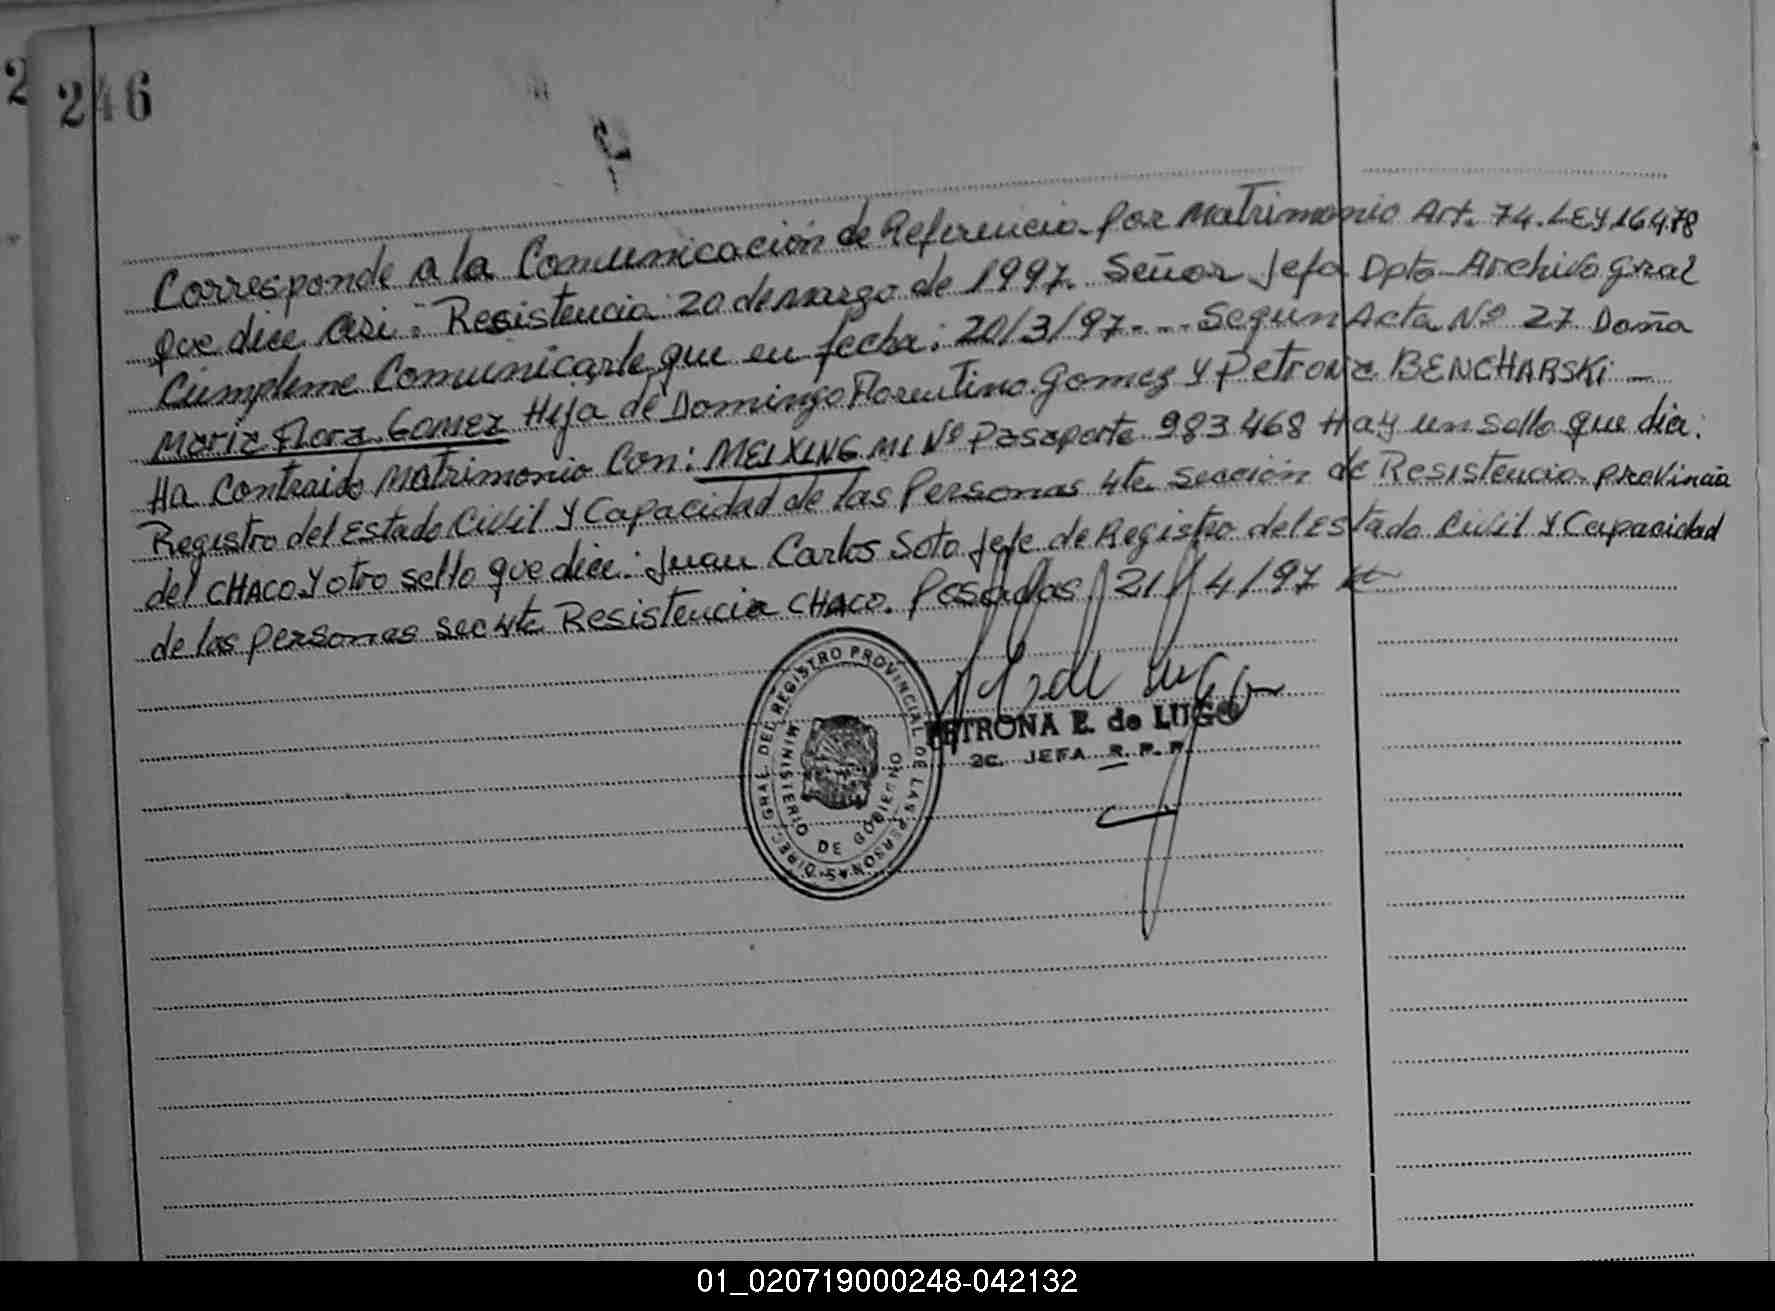 2
246
Corresponde a la Comunicación de Referencia por Matrimonio Art. 74. LEY 16478
que dice asi: Resistencia 20 de marzo de 1997. Señor Jefa Dpto Archivo Gral
Cumpleme Comunicarle que en fecha: 20/3/97.-.- Segun Acta Nº 27 Doña
Maria Flora Gomez Hija de Domingo Florentino Gomez y Petrona BENCHARSKI -
Ha Contraido Matrimonio Con: MEIXING MI Nº Pasaporte 983468 Hay un sello que dice:
Registro del Estado Civil y Capacidad de las Personas 4ta sección de Resistencia provincia
del CHACO y otro sello que dice: Juan Carlos Soto Jefe de Registro del Estado Civil y Capacidad
de las personas sec 4ta Resistencia CHACO. Posadas 21/4/97
PETRONA E. de LUGO
2C. JEFA R. P. P.
DIREC. GRAL. DEL REGISTRO PROVINCIAL DE LAS PERSONAS
MINISTERIO DE GOBIERNO
01_020719000248-042132